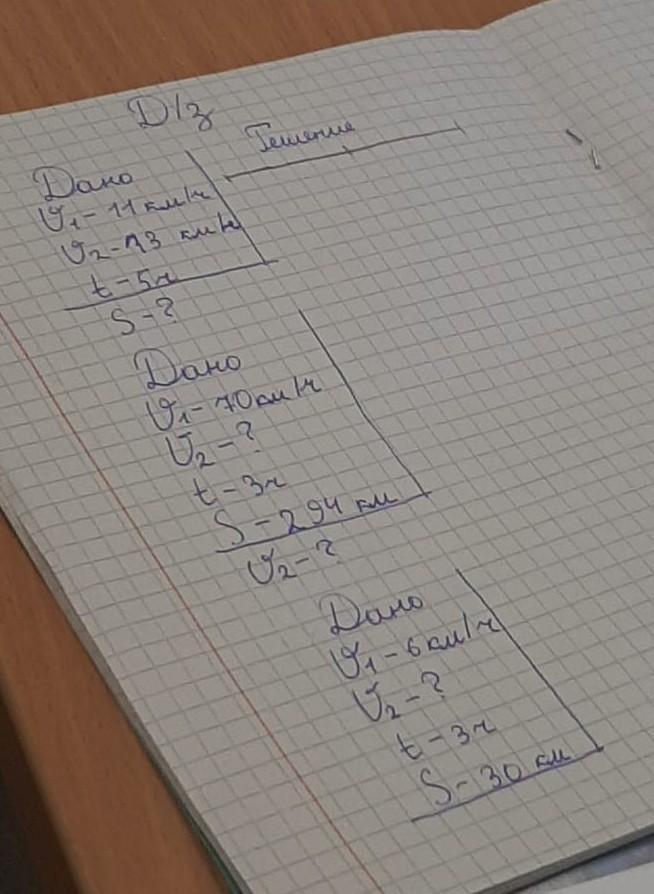 Д/з
Решение
Дано
V1 - 11 км/ч
V2 - 13 км/ч
t - 5ч
S - ?
Дано
V1 - 70 км/ч
V2 - ?
t - 3ч
S - 294 км
V2 - ?
Дано
V1 - 6 км/ч
V2 - ?
t - 3ч
S - 30 км